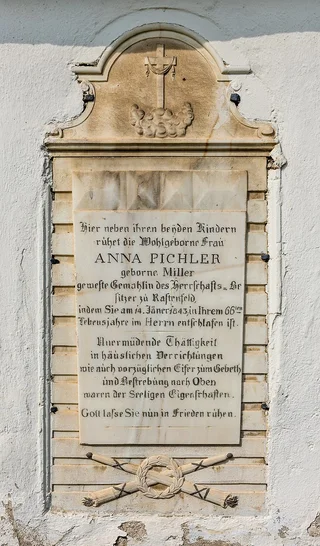 Hier neben ihren beyden Kindern
ruhet die Wohlgeborne Frau
ANNA PICHLER
geborne Miller
geweste Gemahlin des Herrschafts-Be
sitzer zu Rastenfeld,
indem Sie am 14. Jäner 1843, in Ihrem 66ten
Lebensjahre im Herrn entschlafen ist.
Unermüdende Thättigkeit
in häuslichen Verrichtungen
wie auch vorzüglichen Eifer zum Gebeth
und Bestrebung nach Oben
waren der Seeligen Eigenschaften.
Gott lasse Sie nun in Frieden ruhen.